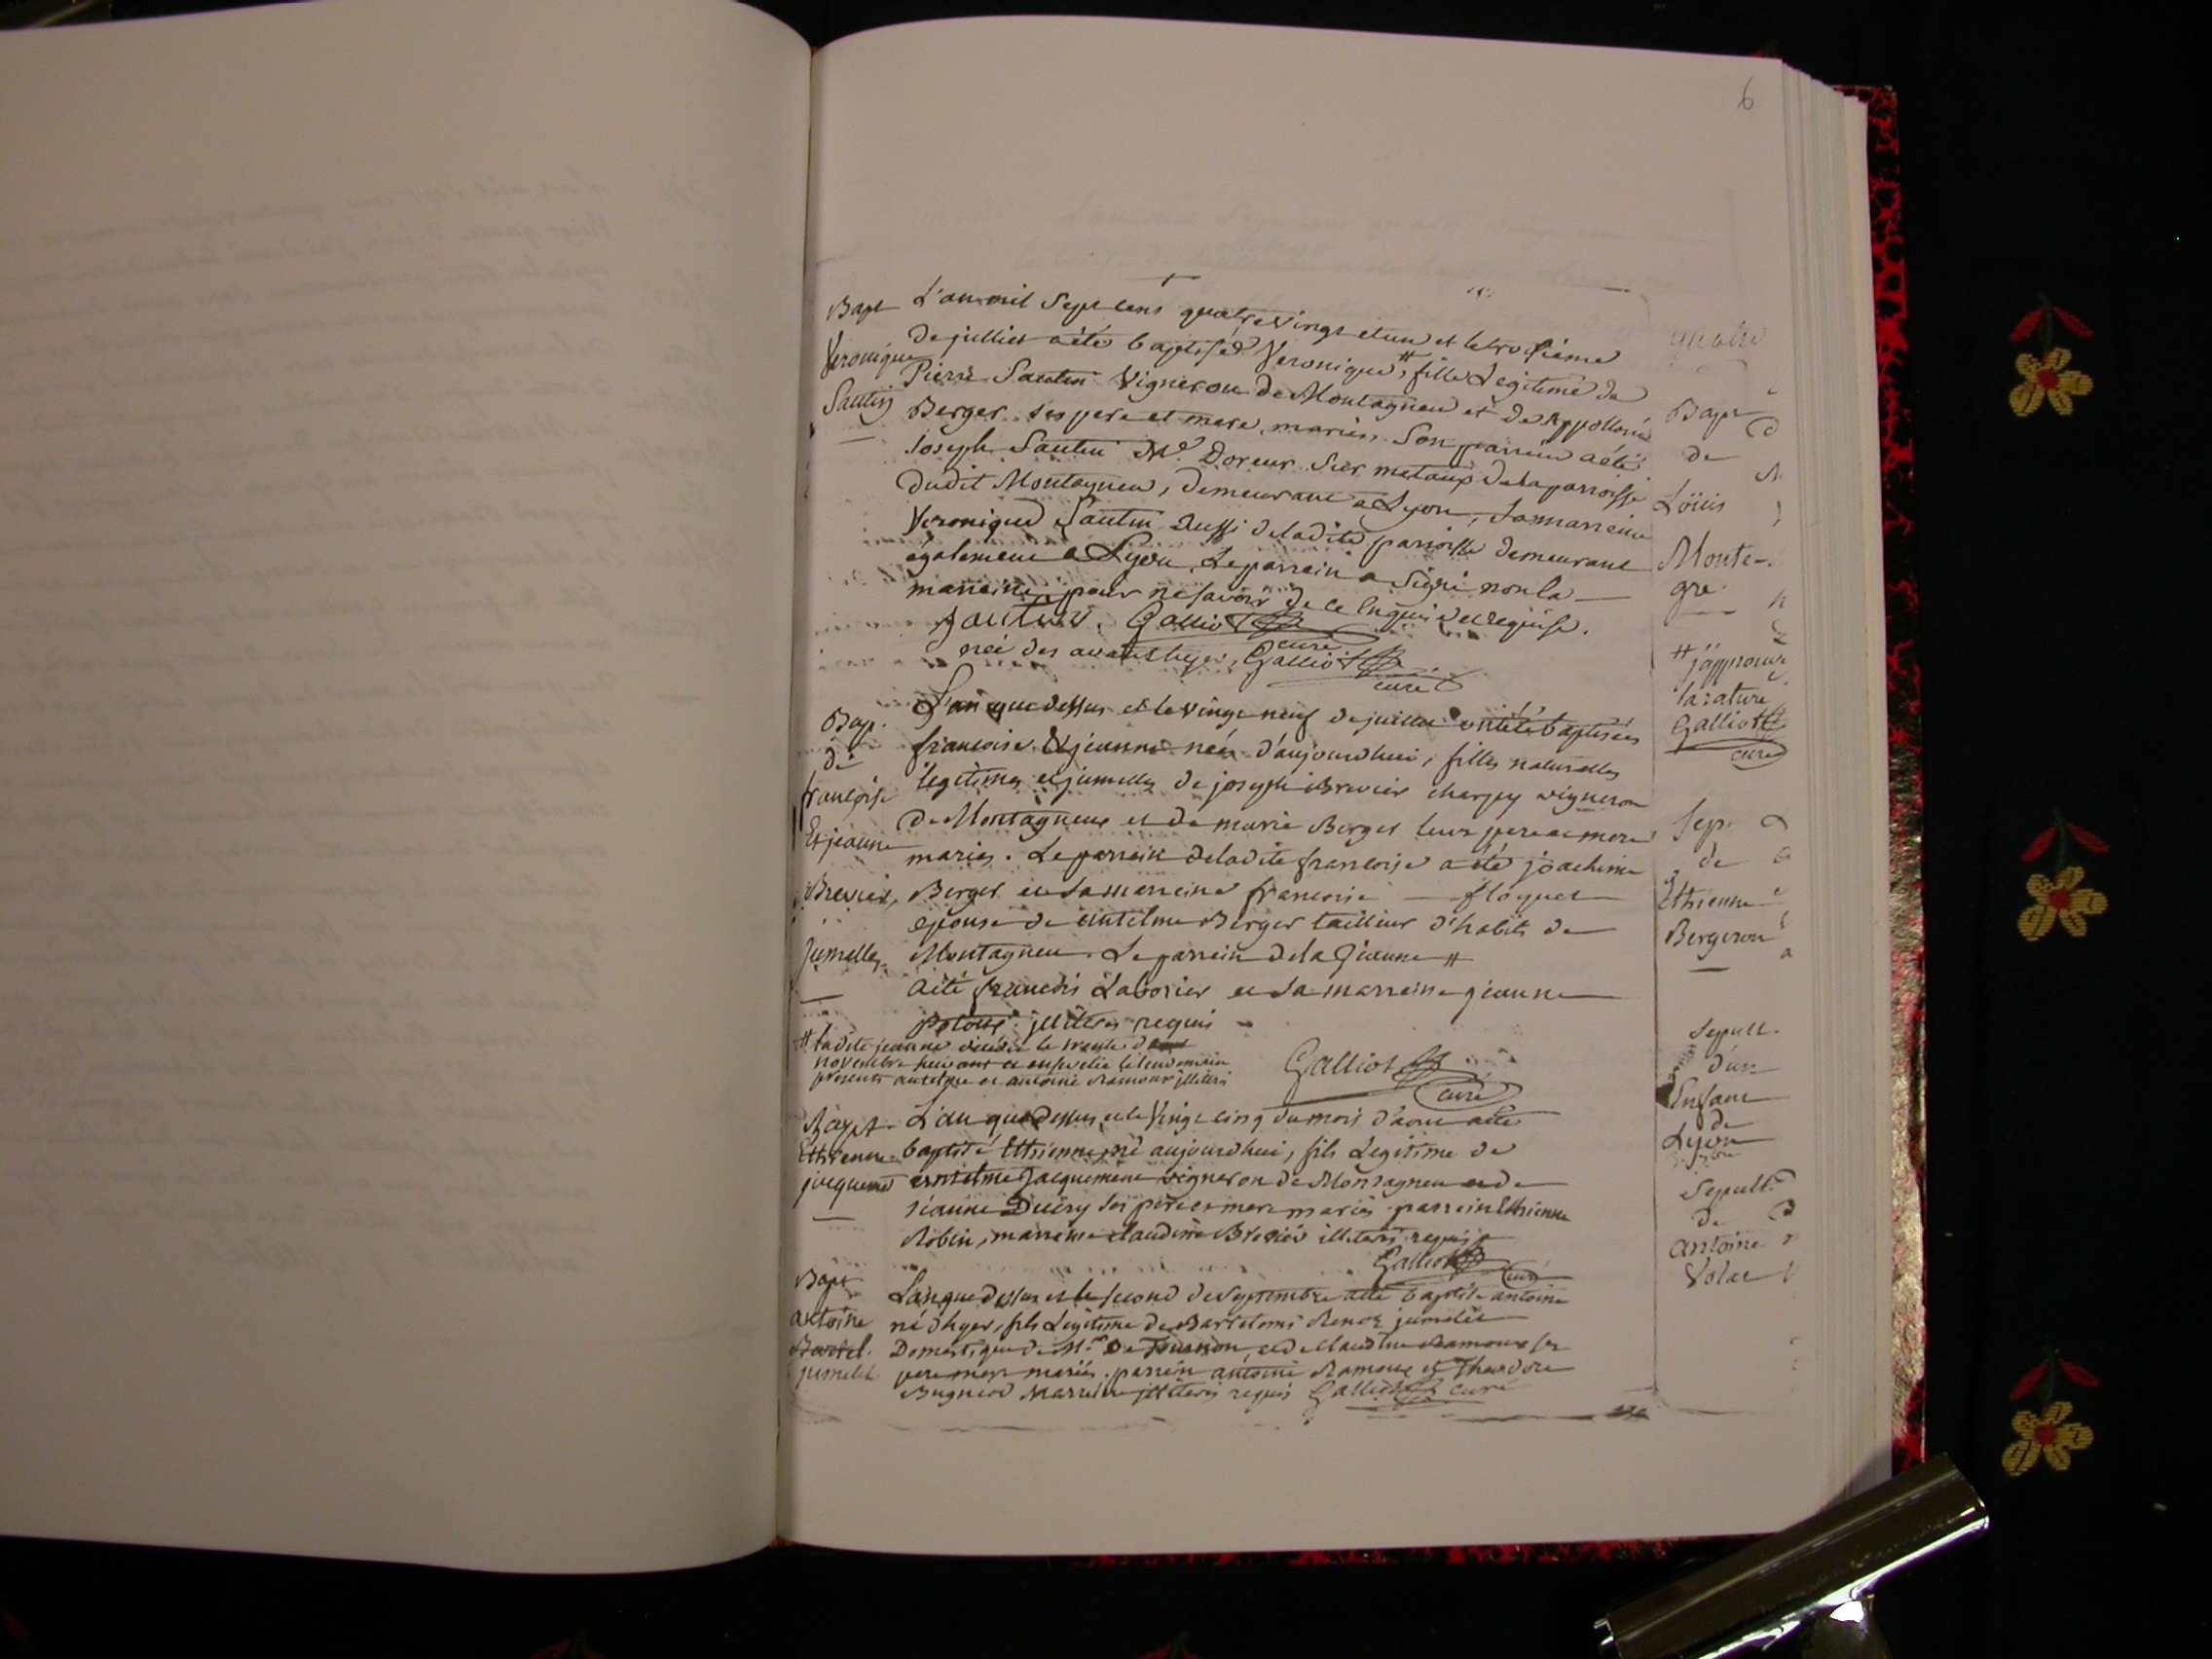 6
Bapt
Veronique
Sautin
L'an mil Sept cens quatre vingt et un et le troisième
de juillet a été baptisée Veronique, # fille Legitime de
Pierre Sautin Vigneron de Montagneu et de Appollonie
Berger ses pere et mere mariés. Son parrain a été
Joseph Sautin Me. Doreur sur metaux de la parroisse
dudit Montagneu, demeurant a Lyon, sa marraine
Veronique Sautin aussi de la dite parroisse demeurant
également a Lyon, Le parrain a signé non la
marraine pour ne savoir de ce enquis et requise.
Sautin. Galliot curé
née des avant hyer, Galliot curé
Bap.
de
françoise
Et jeanne
Brevier,
Jumelles
L'an que dessus et le vingt neuf de juillet ont été baptisées
francoise & jeanne nées d'aujourdhui, filles naturelles
legitimes et jumelles de joseph Brevier vigneron
de Montagneux et de marie Berger leurs pere et mere
mariés. Le parrein de ladite francoise a été joachim
Berger et sa marreine francoise floquet
epouse de antelme Berger tailleur d'habits de
Montagneu. Le parrein de la Jeanne #
a été francois Laborier et sa marreine jeanne
illiteres requis
# ladite jeanne décédée le trente de
novembre suivant et ensevelie le lendemain
presents antelme et antoine Ramoux illiteré
Galliot
curé
Bapt.
Ethienne
jacquemet
L'an que dessus et le Vingt cinq du mois d'aout a été
baptisé Ethienne né aujourdhui, fils Legitime de
antelme Jacquemet vigneron de Montagneu et de
jeanne ses pere et mere mariés parrein Ethienne
Robin, marreine claudine Brevier illiterés requis
Galliot curé
Bapt
antoine
jumelle
L'an que dessus et le second de Septembre a été baptisé antoine
né d'hyer, fils Legitime de Bartelomi Renoz jumelle
Domestique de Mr. De Tournon, et de Claudine Ramoux ses
pere mere mariés. parrein antoine Ramoux et Theodore
Bugnerd Marreine illiterés requis Galliot curé
quatre
Bapt
de
Loüis
Monte-
gre
# j'approuve
la rature
Galliot
curé
Sep.
de
Ethienne
Bergeron
Sepult.
d'un
Enfant
de
Lyon
Sepult.
de
antoine
Volat